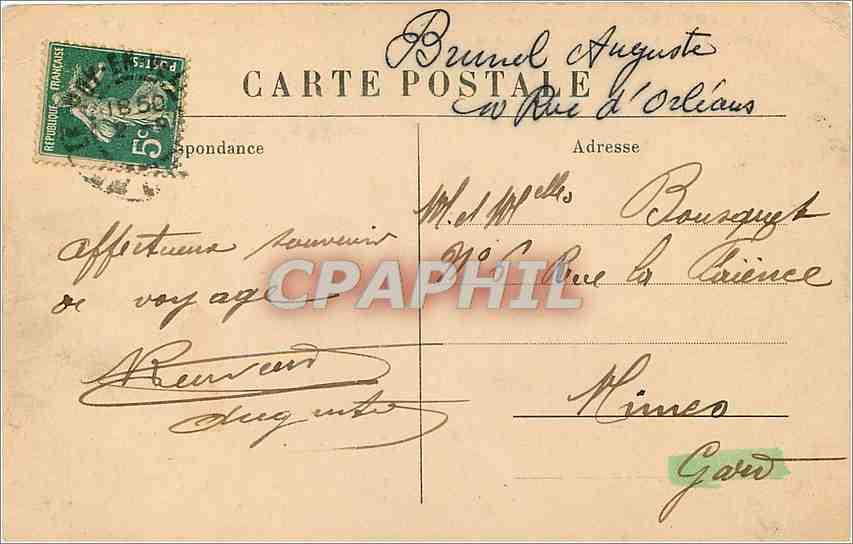 Brunel Auguste
CARTE POSTALE
Rue d'Orléans
REPUBLIQUE FRANÇAISE
POSTES
5c
18 50
spondance
Adresse
affectueux souvenir
de voyage
Auguste
M. et Mlles Bousquet
N° 6 Rue la Faïence
Nimes
Gard
CPAPHIL